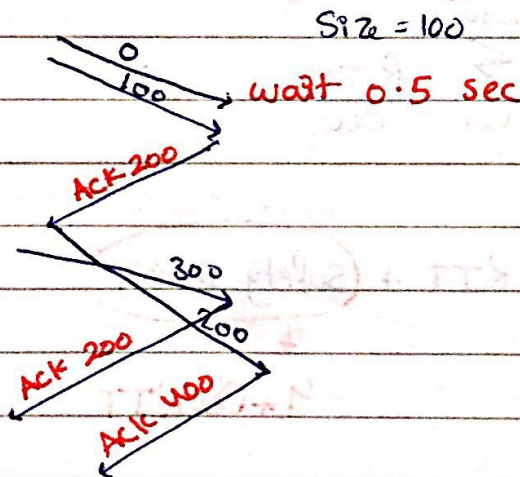 Size = 100
0
100
wait 0.5 sec
Ack 200
300
200
Ack 200
Ack 400